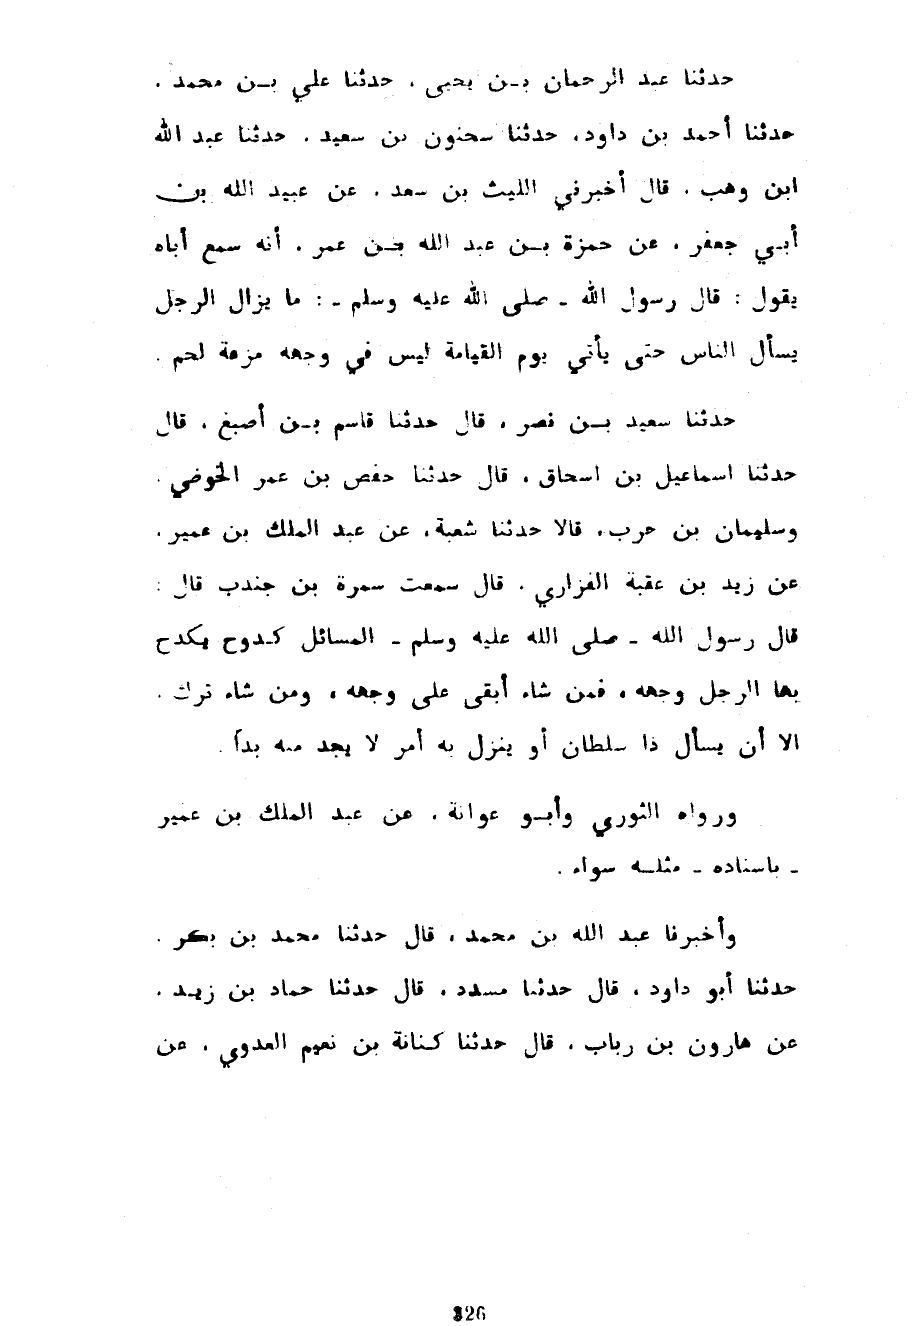 حدثنا عبد الرحمان بن يحيى ، حدثنا علي بن محمد ،
حدثنا أحمد بن داود، حدثنا سحنون بن سعيد ، حدثنا عبد الله
ابن وهب ، قال أخبرني الليث بن سعد ، عن عبيد الله بن
أبي جعفر ، عن حمزة بن عبد الله بن عمر ، أنه سمع أباه
يقول : قال رسول الله ـ صلى الله عليه وسلم ـ : ما يزال الرجل
يسأل الناس حتى يأتي يوم القيامة ليس في وجهه مزعة لحم .
حدثنا سعيد بن نصر ، قال حدثنا قاسم بن أصبغ ، قال
حدثنا اسماعيل بن اسحاق ، قال حدثنا حفص بن عمر الخوضي ،
وسليمان بن حرب، قالا حدثنا شعبة، عن عبد الملك بن عمير،
عن زيد بن عقبة الفزاري ، قال سمعت سمرة بن جندب قال :
قال رسول الله ـ صلى الله عليه وسلم ـ المسائل كدوح يكدح
بها الرجل وجهه ، فمن شاء أبقى على وجهه ، ومن شاء ترك ،
الا أن يسأل ذا سلطان أو ينزل به أمر لا يجد منه بدا .
ورواه الثوري وأبو عوانة ، عن عبد الملك بن عمير
ـ باسناده ـ مثله سواء .
وأخبرنا عبد الله بن محمد ، قال حدثنا محمد بن بكر ،
حدثنا أبو داود ، قال حدثنا مسدد ، قال حدثنا حماد بن زيد ،
عن هارون بن رباب ، قال حدثنا كنانة بن نعيم العدوي ، عن
326